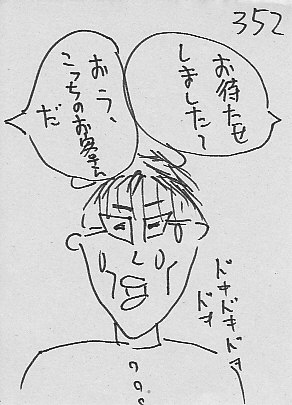 352
お待たせ
しました〜
おう、
こっちのお客さん
だ
ドキドキドキ
ドキ